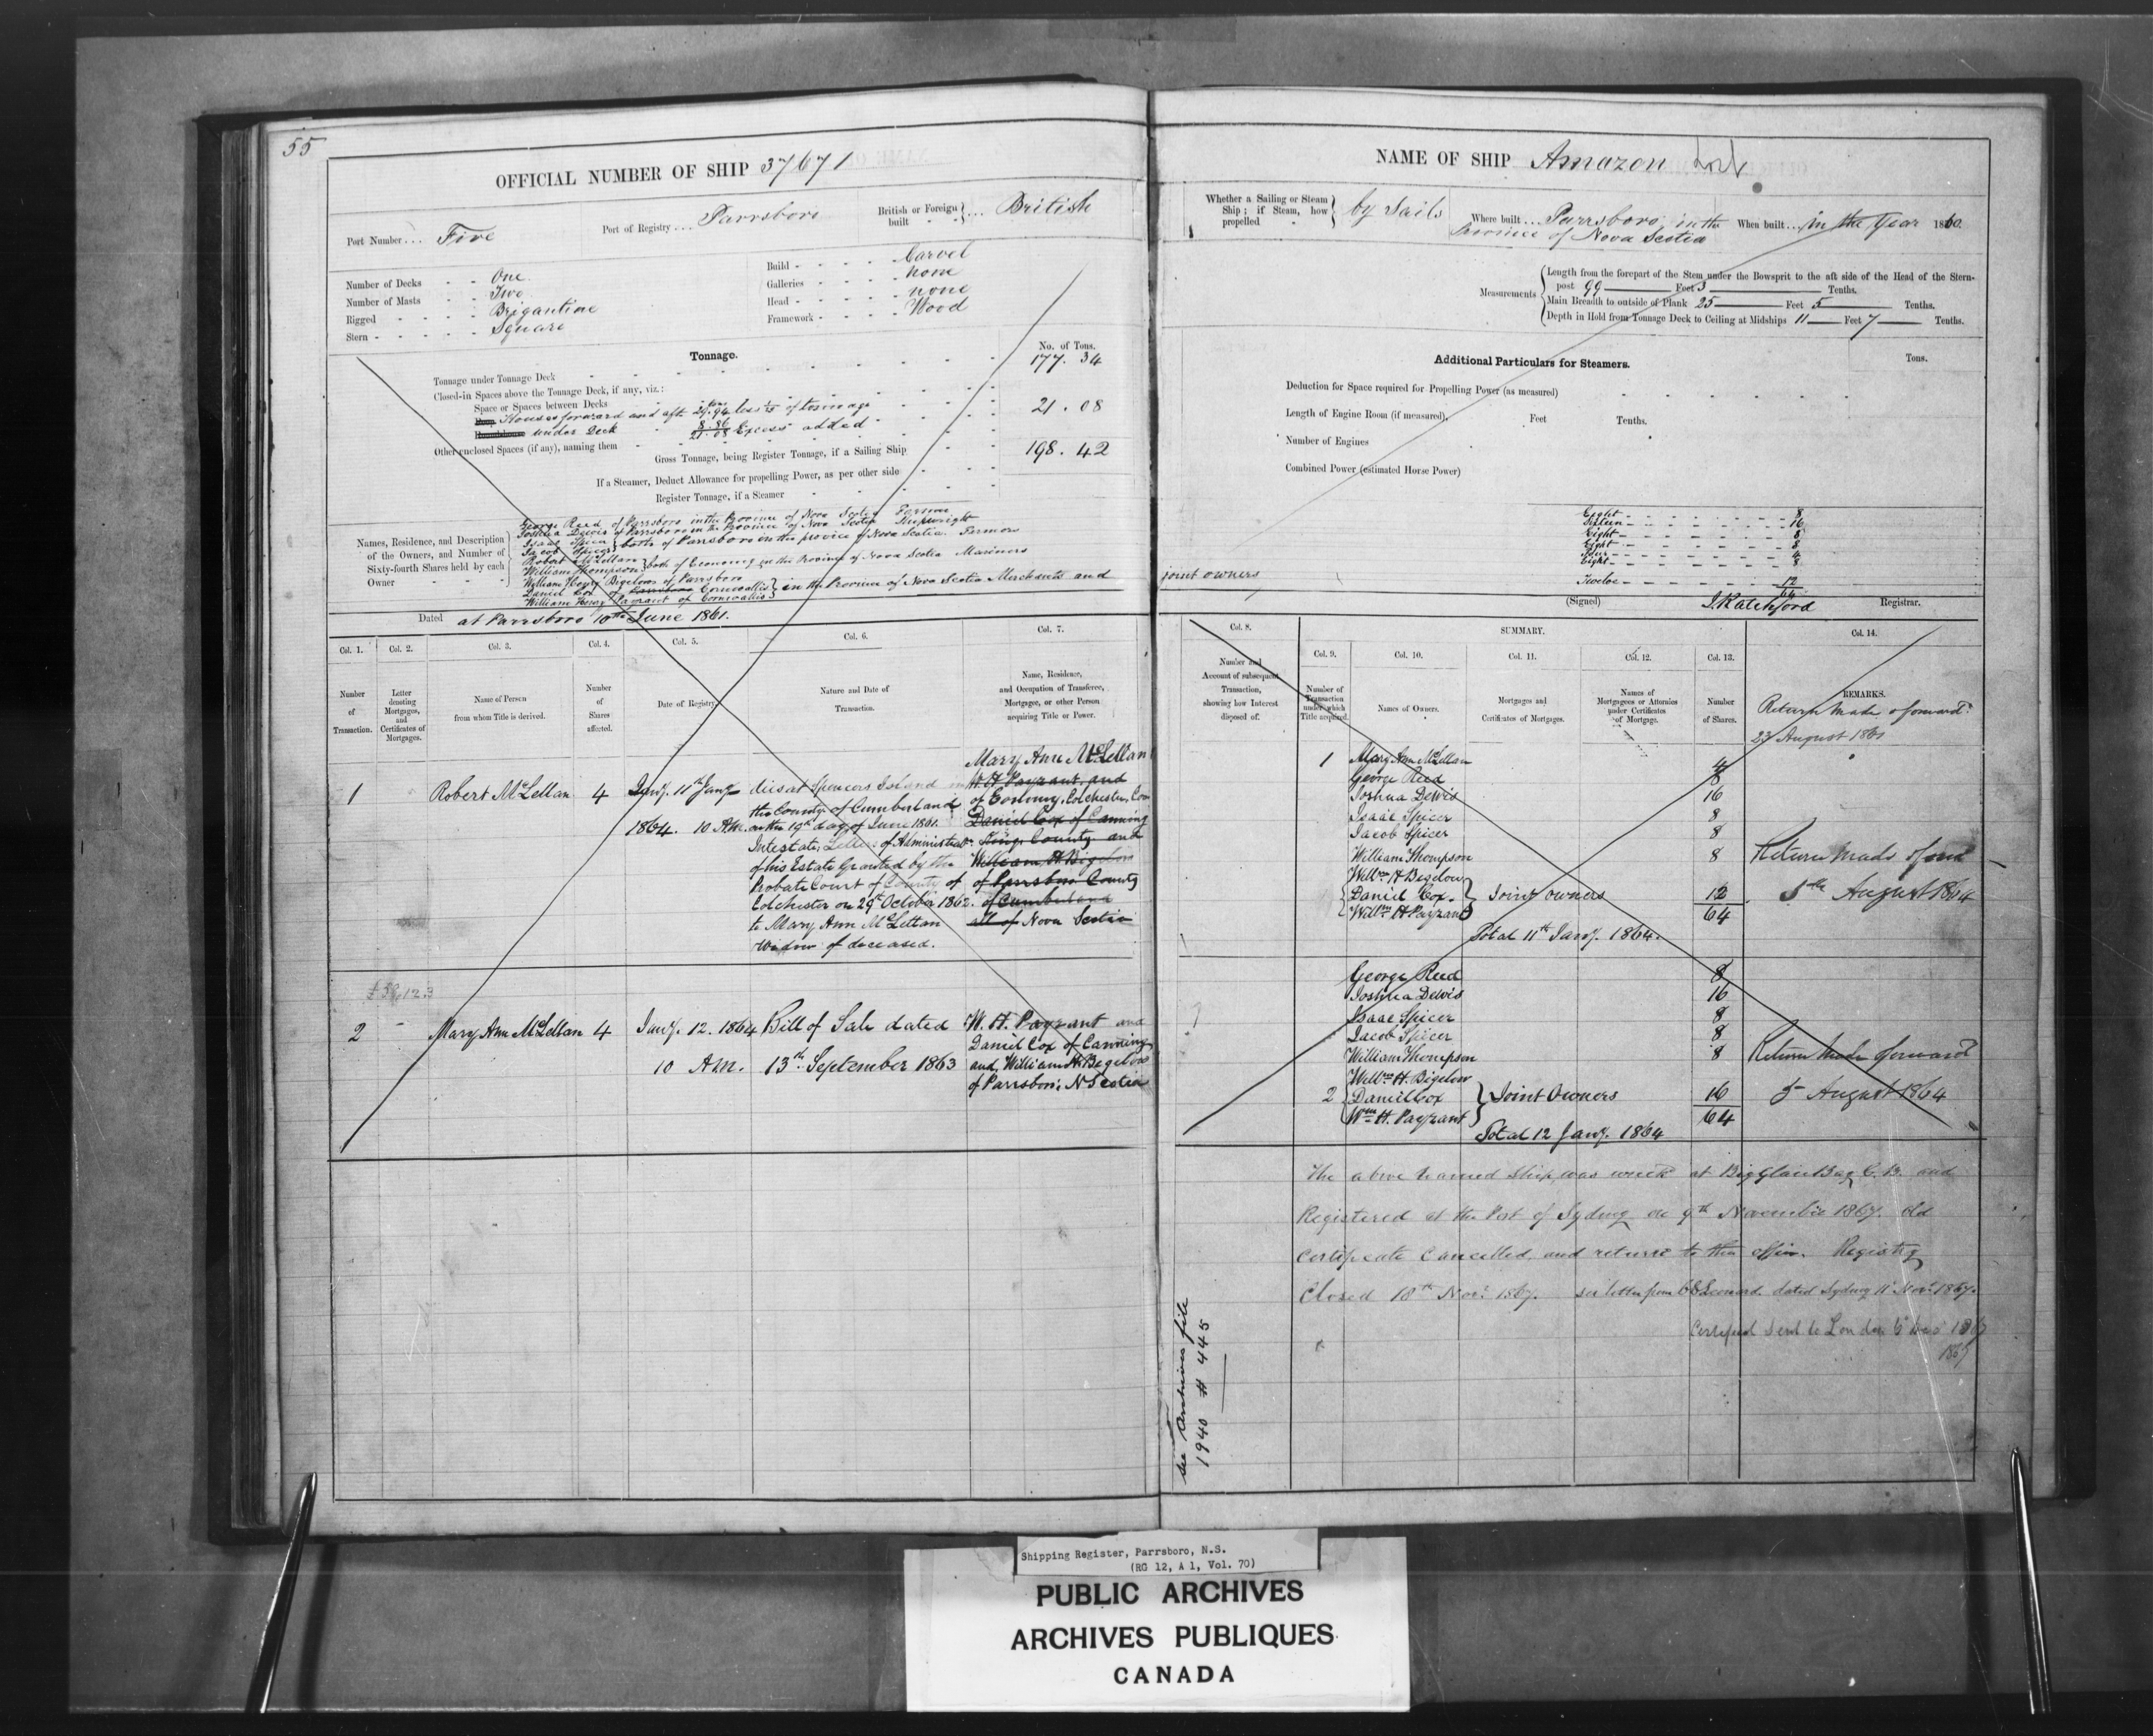 55
OFFICIAL NUMBER OF SHIP 37671
Port Number... Five
Port of Registry... Parrsboro
British or Foreign built } ... British
Number of Decks - - One
Number of Masts - - Two
Rigged - - - - Brigantine
Stern - - - - - Square
Build - - - - - Carvel
Galleries - - - - none
Head - - - - - none
Framework - - - - Wood
Tonnage.
No. of Tons.
Tonnage under Tonnage Deck 177. 34
Closed-in Spaces above the Tonnage Deck, if any, viz.:
Space or Spaces between Decks
Houses forward and aft 29.94 less of tonnage 21 . 08
under Deck 8.86 21.08 Excess added
Other enclosed Spaces (if any), naming them
Gross Tonnage, being Register Tonnage, if a Sailing Ship 198. 42
If a Steamer, Deduct Allowance for propelling Power, as per other side
Register Tonnage, if a Steamer
Names, Residence, and Description of the Owners, and Number of Sixty-fourth Shares held by each Owner
George Reed of Parrsboro in the Province of Nova Scotia Farmer
Joshua Dewis of Parrsboro in the Province of Nova Scotia Shipwright
Isaac Spicer
Jacob Spicer } both of Parrsboro in the province of Nova Scotia. Farmers
Robert McLellan
William Thompson } both of Economy in the Province of Nova Scotia Mariners
William Henry Bigelow of Parrsboro
Daniel Cox of Parrsboro Cornwallis } in the Province of Nova Scotia Merchants and
William Henry Payzant of Cornwallis
Dated at Parrsboro 10th June 1861.
Col. 1. Col. 2. Col. 3. Col. 4. Col. 5. Col. 6. Col. 7.
Number of Transaction.
Letter denoting Mortgages, and Certificates of Mortgages.
Name of Person from whom Title is derived.
Number of Shares affected.
Date of Registry
Nature and Date of Transaction.
Name, Residence, and Occupation of Transferee, Mortgagee, or other Person acquiring Title or Power.
1 Robert McLellan 4
Jany. 11th Jany
1864. 10 AM.
dies at Spencers Island in
the County of Cumberland
on the 19th day of June 1861.
Intestate, Letters of Administration
of his Estate Granted by the
Probate Court of County of
Colchester on 29th October 1862.
to Mary Ann McLellan
Widow of deceased.
Mary Ann McLellan
W H Payzant, and
of Economy, Colchester, Coun
Daniel Cox of Canning
Kings County and
William H Bigelow
of Parrsboro County
of Cumberland
all of Nova Scotia
2 Mary Ann McLellan 4
Jany. 12. 1864
10 AM.
Bill of Sale dated
13th September 1863
W. H. Payzant and
Daniel Cox of Canning
and, William H Bigelow
of Parrsboro, N Scotia
NAME OF SHIP Amazon
Whether a Sailing or Steam Ship; if Steam, how propelled } by Sails
Where built... Parrsboro, in the
Province of Nova Scotia
When built... in the Year 1860.
Measurements
Length from the forepart of the Stem under the Bowsprit to the aft side of the Head of the Stern-
post 99 Feet 3 Tenths.
Main Breadth to outside of Plank 25 Feet 5 Tenths.
Depth in Hold from Tonnage Deck to Ceiling at Midships 11 Feet 7 Tenths.
Additional Particulars for Steamers.
Tons.
Deduction for Space required for Propelling Power (as measured)
Length of Engine Room (if measured), Feet Tenths.
Number of Engines
Combined Power (estimated Horse Power)
Eight 8
Sixteen 16
Eight 8
Eight 8
Four 4
Eight 8
joint owners
Twelve 12
64
(Signed) J. Ratchford Registrar.
Col. 8.
SUMMARY.
Col. 9. Col. 10. Col. 11. Col. 12. Col. 13. Col. 14.
Number and Account of subsequent Transaction, showing how Interest disposed of.
Number of Transaction under which Title acquired.
Names of Owners.
Mortgages and Certificates of Mortgages.
Names of Mortgagees or Attornies under Certificates of Mortgage.
Number of Shares.
REMARKS.
Return made & forward
23 August 1861
1 Mary Ann McLellan 4
George Reed 8
Joshua Dewis 16
Isaac Spicer 8
Jacob Spicer 8
William Thompson 8
Willm H Bigelow
Daniel Cox } Joint owners 12
Willm H Payzant 64
Total 11th Jany. 1864.
Return made
5th August 1864
George Reed 8
Joshua Dewis 16
Isaac Spicer 8
Jacob Spicer 8
William Thompson 8
Willm H. Bigelow
2 Daniel Cox } Joint Owners 16
Wm H. Payzant 64
Total 12 Jany. 1864
Return made forward
5 August 1864
The above named Ship, was at Big Glace Bay C. B. and
Registered at the Port of Sydney on 9th November 1867. Old
Certificate Cancelled, and to this office. Registry
Closed 18th Novr. 1867. see letter from Leonard dated Sydney 11 Novr 1867.
Sent to London 1867
See Archives file
1940 # 445
Shipping Register, Parrsboro, N.S.
(RG 12, A 1, Vol. 70)
PUBLIC ARCHIVES
ARCHIVES PUBLIQUES
CANADA